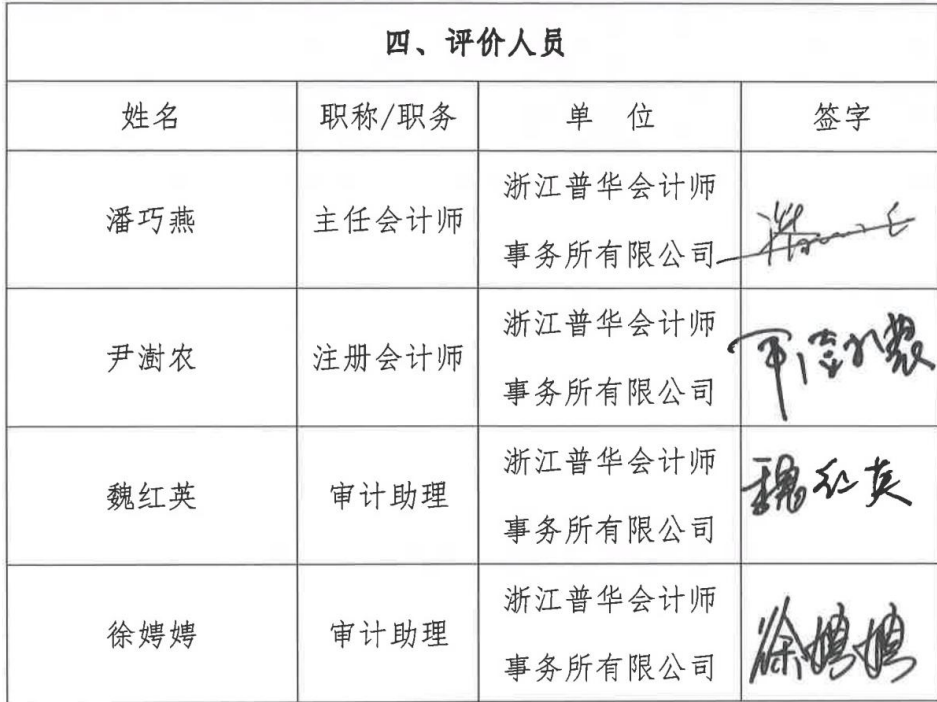 四、评价人员
姓名 职称/职务 单 位 签字
潘巧燕 主任会计师 浙江普华会计师
事务所有限公司
尹澍农 注册会计师 浙江普华会计师
事务所有限公司
魏红英 审计助理 浙江普华会计师
事务所有限公司 魏红英
徐娉娉 审计助理 浙江普华会计师
事务所有限公司 徐娉娉